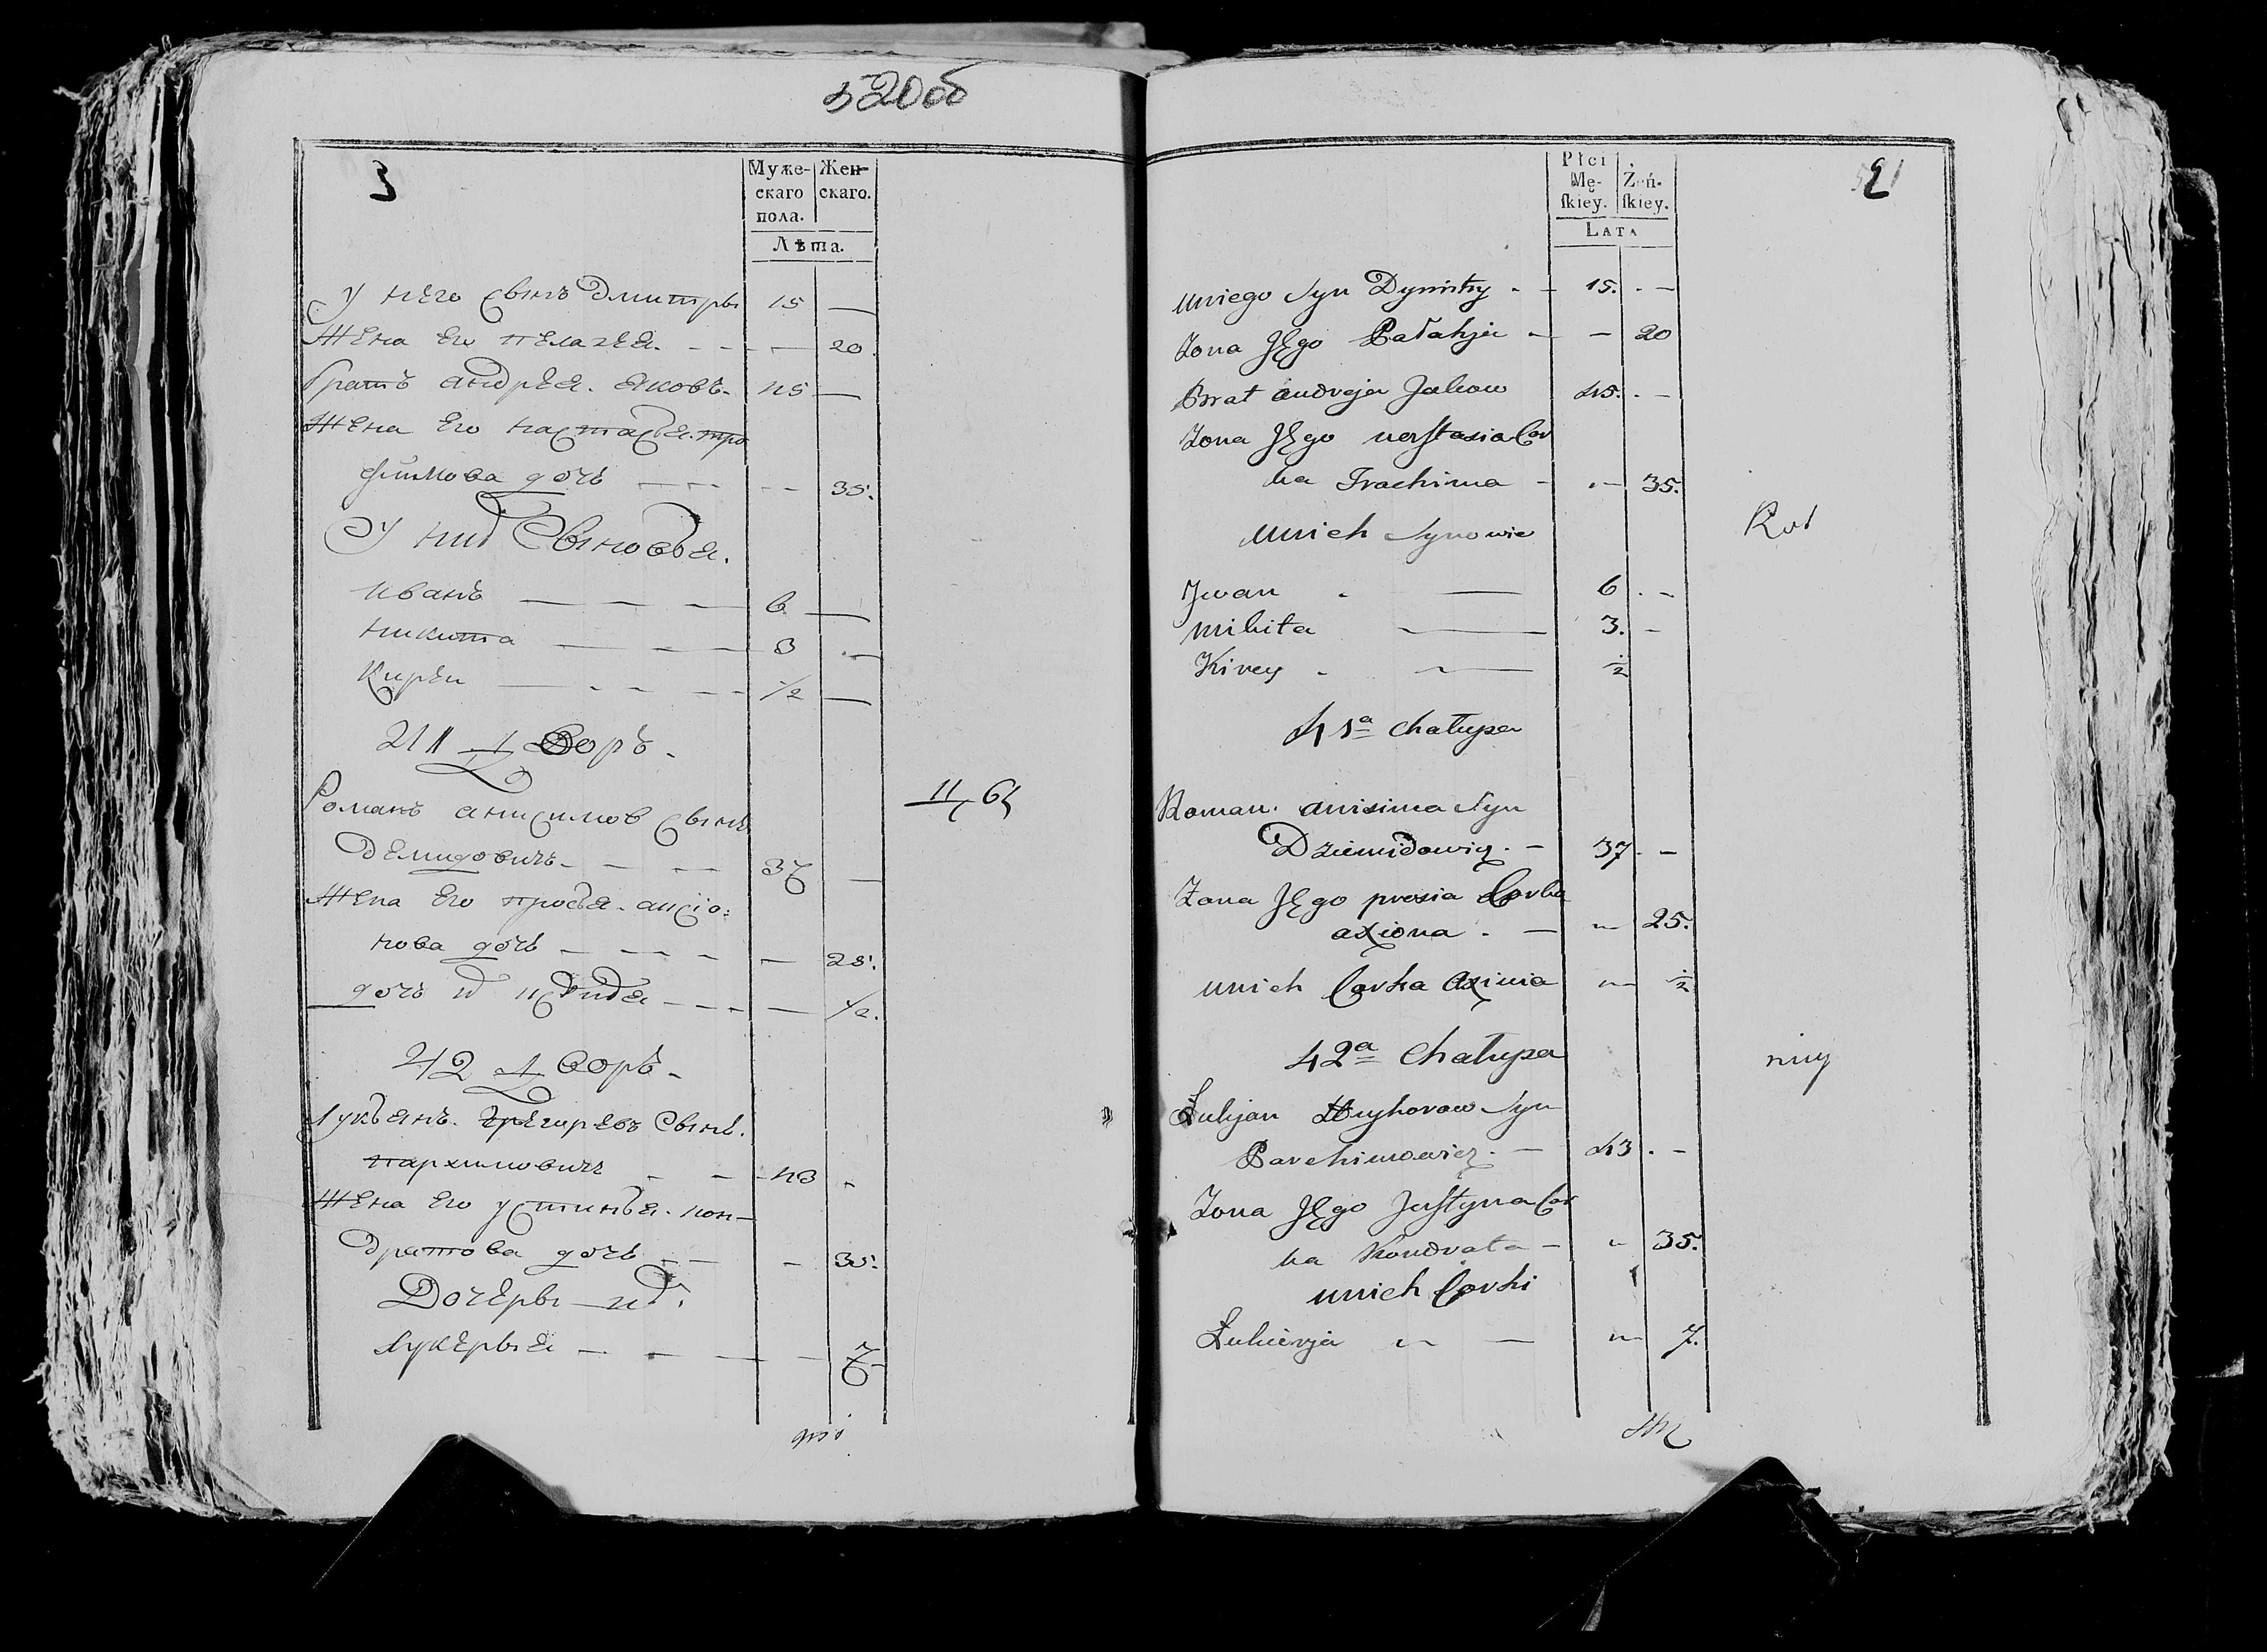 520об
3
Муже- Жен-
скаго скаго.
пола.
Лѣта.
у него сынъ Дмитры 15 —
Жена Его пелагея. - - — 20
братъ андрѣя. яковъ. 45 —
Жена Его настасья. тро
фимова дочь - - - 35.
У них Сыновья.
иванъ — — — 6 —
никита — — — 3 —
Кирѣи — - - — 1/2 —
41 Дворъ.
Романъ анисимов сынъ
демидовичъ - — — 37 —
11,65
Жена Его просья. аксіо=
нова дочь — - - — 25.
дочь их - - - — 1/2.
42 Дворъ.
Лукьянъ. Сынъ.
пархимовичъ - — 43 -
Жена Его устинья. кон-
дратова дочь - — - 35.
Дочеры их.
лукерыя — - — — 7
Płci
Mę- Żeń-
ſkiey. ſkiey.
LATA
uniego Syn Dymitry - 15. -
Zona Jęgo Pałahja - - 20
Brat andreja Jakow 45. -
Zona Jęgo nastasia Cor
ka Trachima - - 35.
unich Synowie
Jwan - — 6 -
mikita — 3. -
Kirey - — 1/2
41a Chałupa
Roman. anisima Syn
Dziemidowicz. - 37 -
Zona Jęgo prosia Corka
axiona. - - 25.
unich Corka Axinia - 1/2
42a Chałupa
Łukjan Hryhorow Syn
Parchimowicz. - 43 -
Zona Jęgo Justyna Cor
ka Kondrata - - 35.
unich Corki
Łukierja - — - 7.